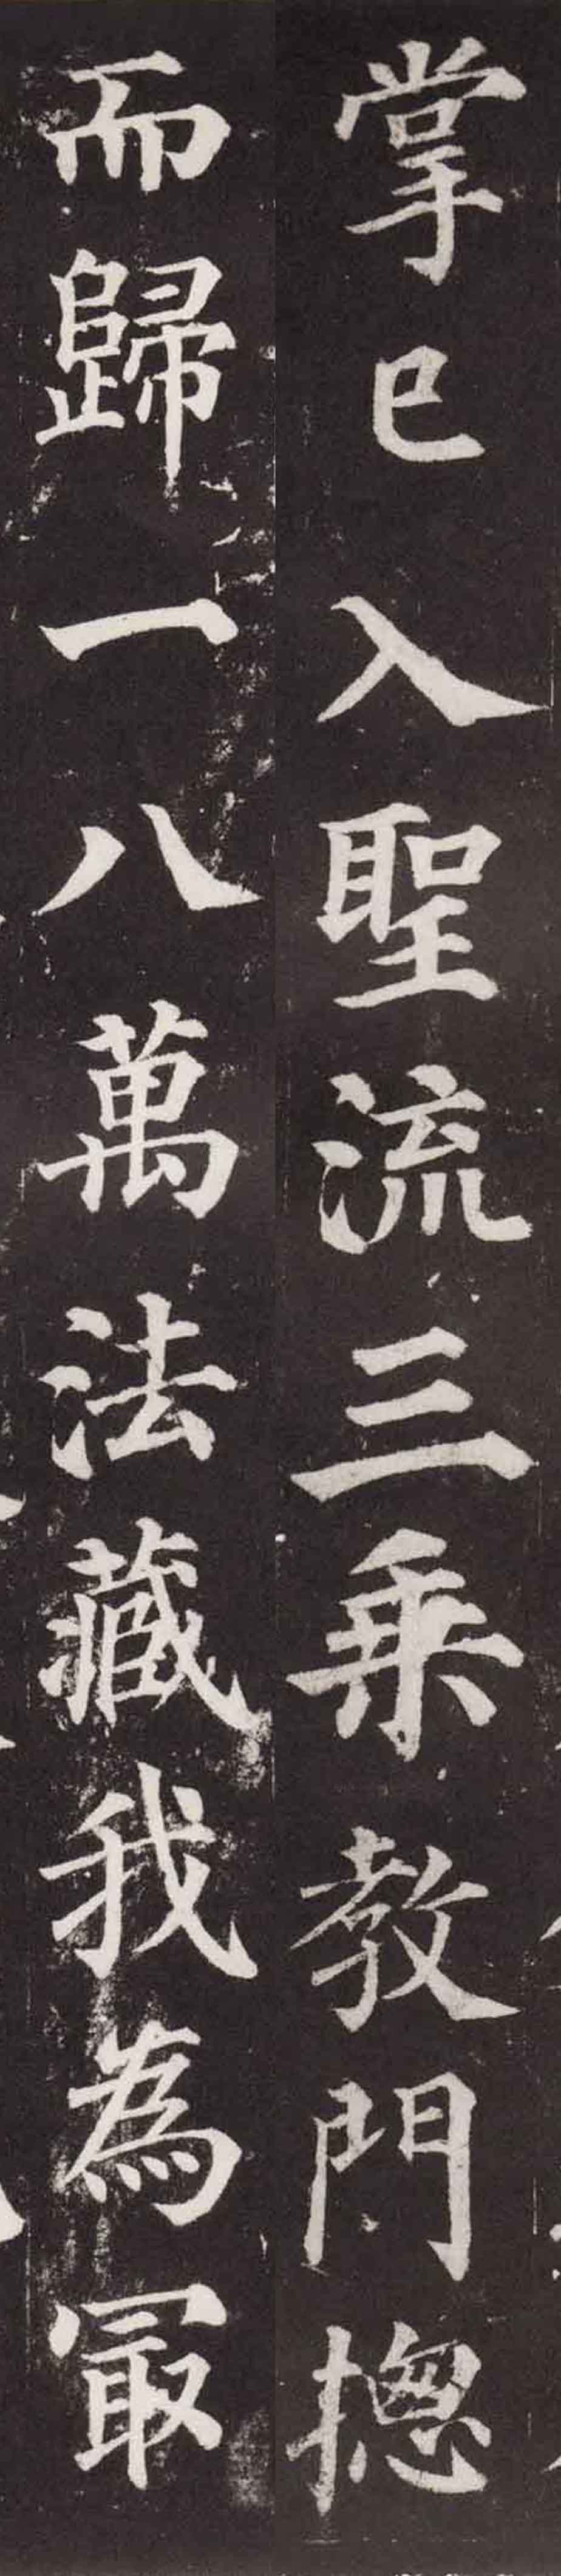 掌已入聖流三乘教門揔
而歸一八萬法藏我為冣